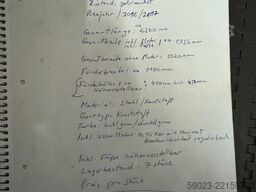 Zustand: gebraucht
Baujahr / 2016/2017
ca
Gesamtlänge: 6500 mm
Gesamtbreite inkl. Motor: ca 1350mm
inkl. Füße
Gesamtbreite ohne Motor: 1320mm
Förderbreite: ca 1190mm
Förderhöhe: ca
Höhenverstellbar
Material: Stahl / Kunststoff
Gurttyp Kunststoff
Farbe:
Inkl. Motor 0,75 kW mit
Geschwindigkeit regulierbar
Inkl. Füße höhenverstellbar
Lagerbestand: 7 Stück
Preis pro Stück
59023-22159